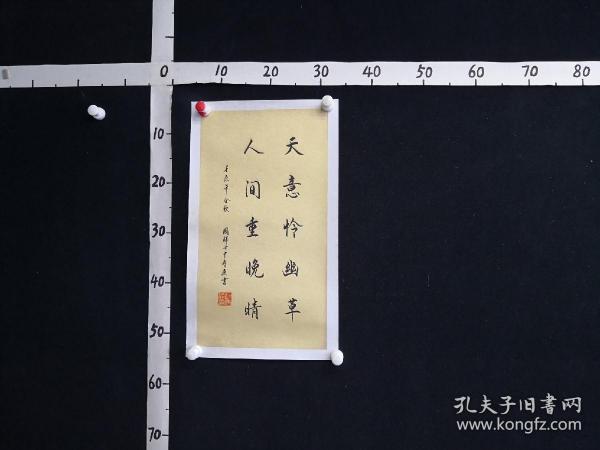 0 10 20 30 40 50 60 70 80
10
20
30
40
50
60
70
天意怜幽草
人间重晚晴
孔夫子旧書网
www.kongfz.com